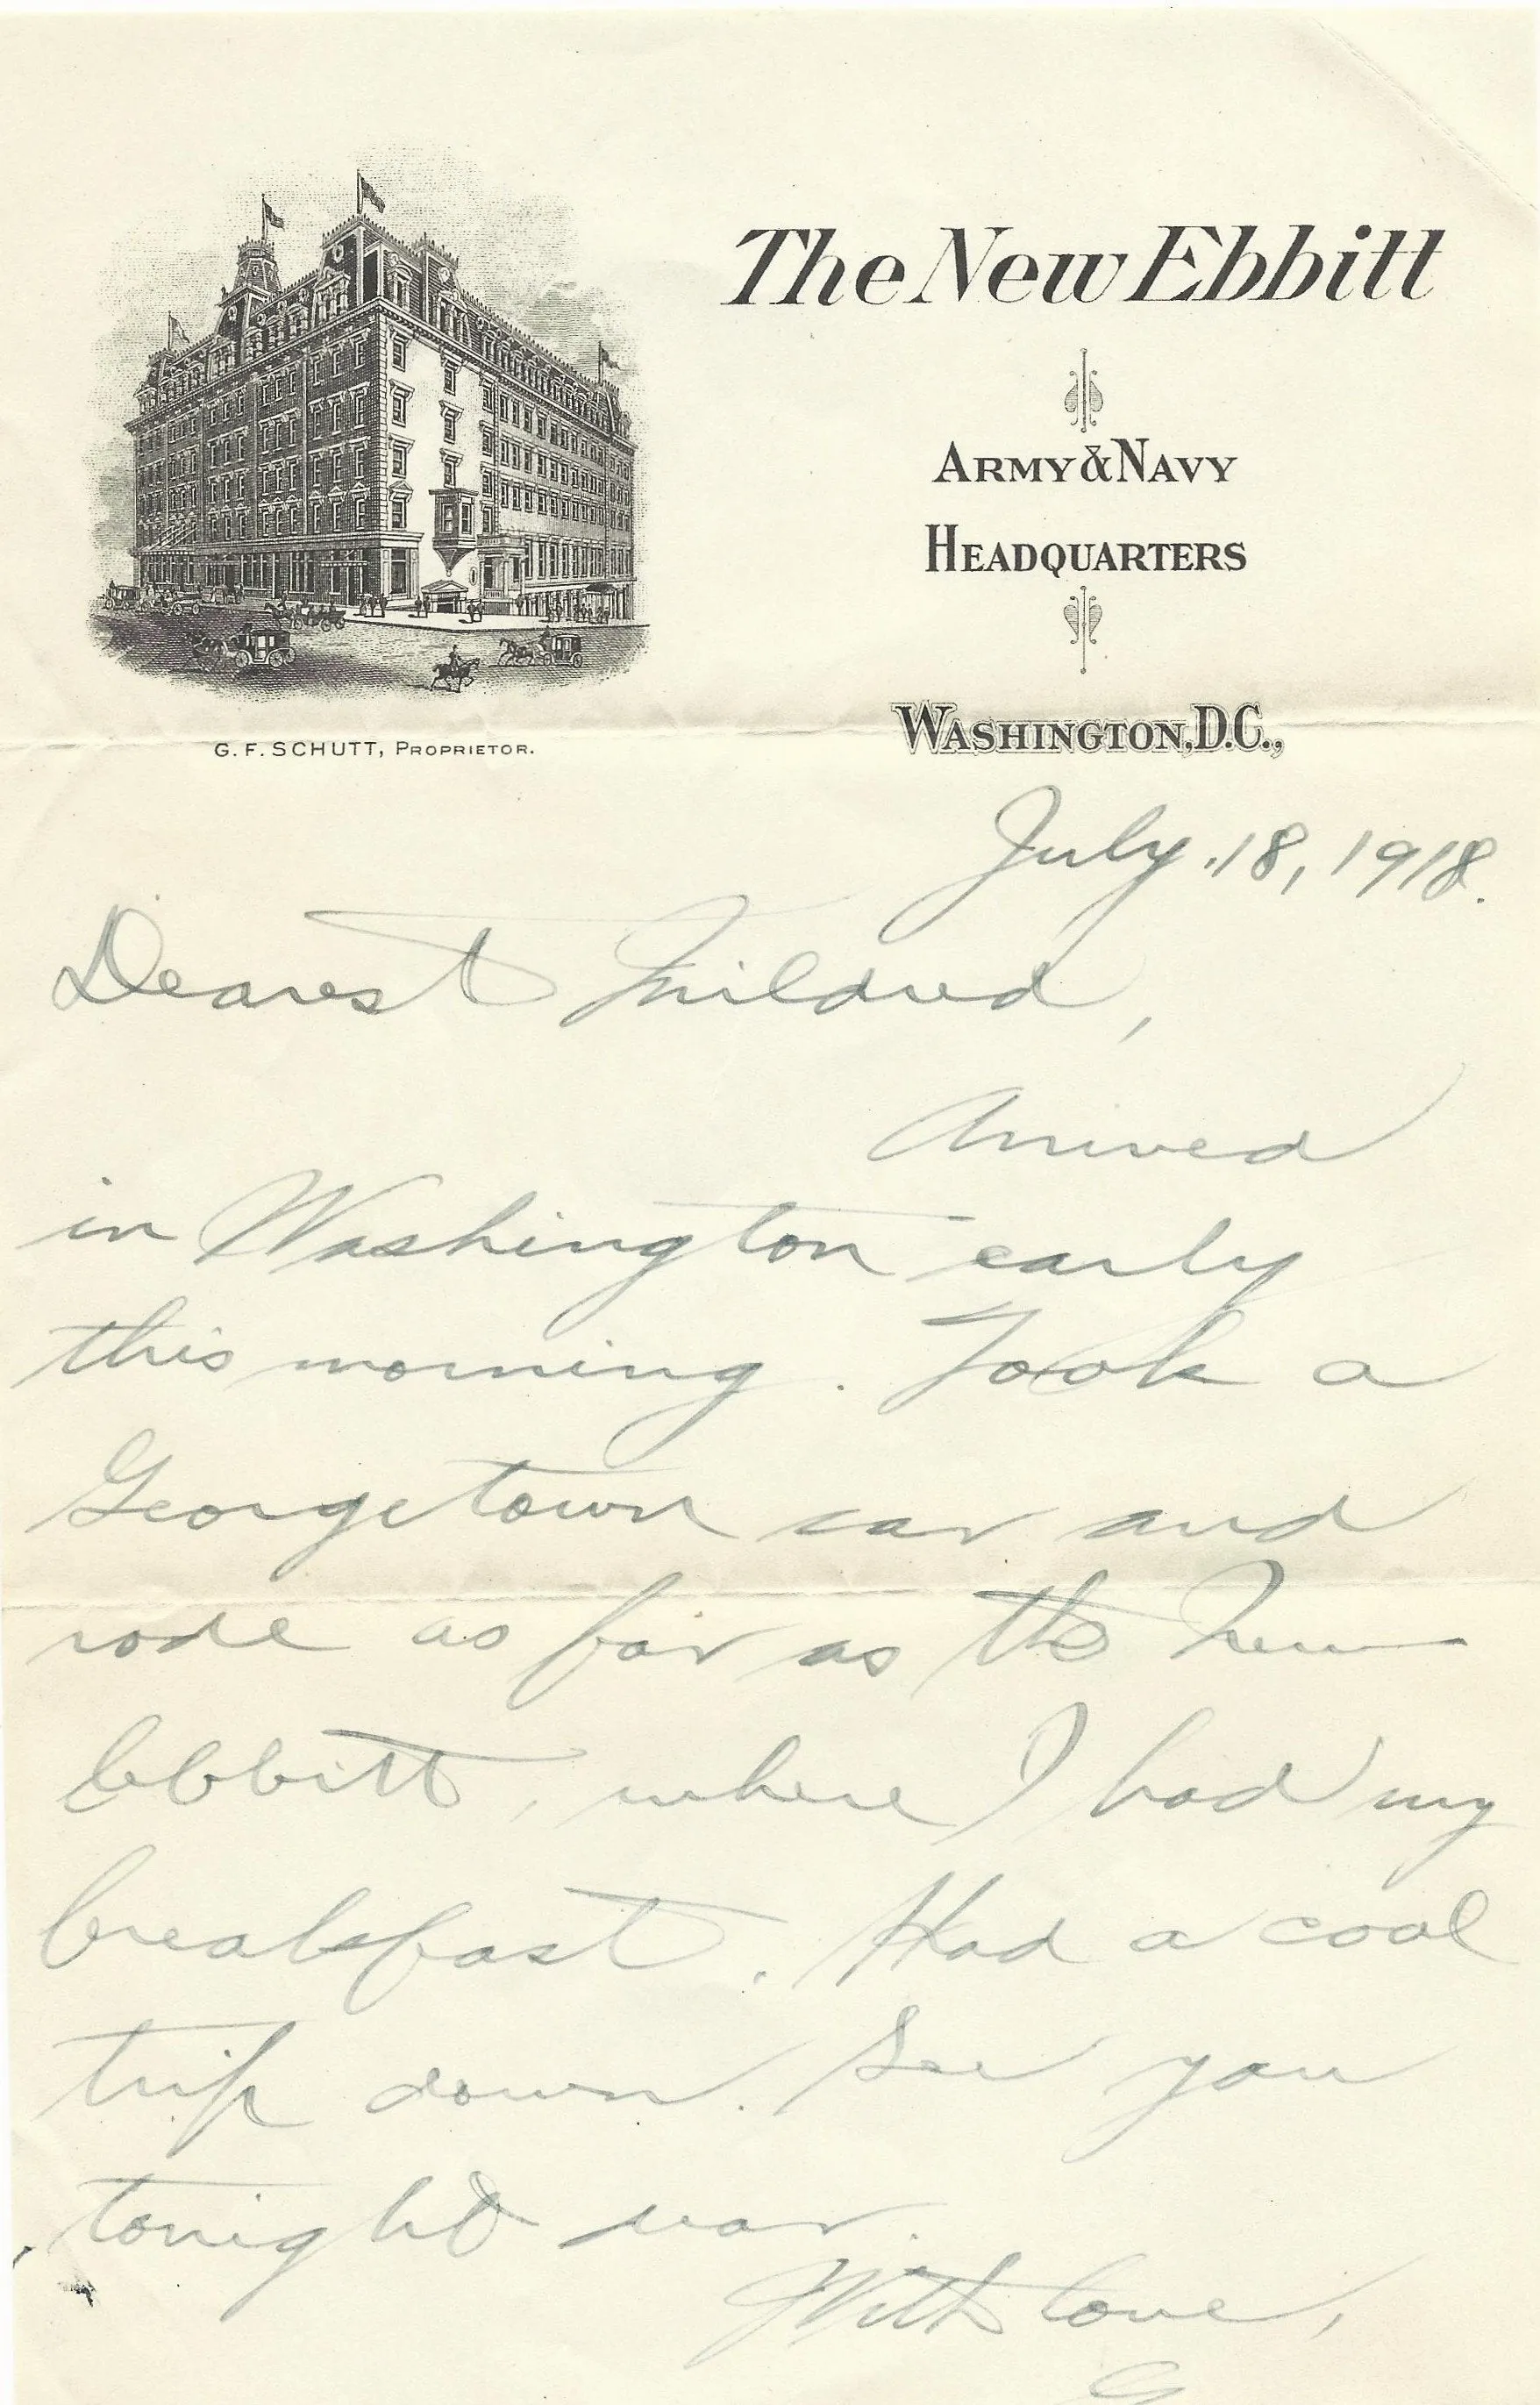 The New Ebbitt
Army & Navy
Headquarters
Washington, D.C.,
G. F. Schutt, Proprietor.
July 18, 1918.
Dearest Mildred,
Arrived
in Washington early
this morning. Took a
Georgetown car and
rode as far as the New
Ebbitt, where I had my
breakfast. Had a cool
trip down. See you
tonight
With love,